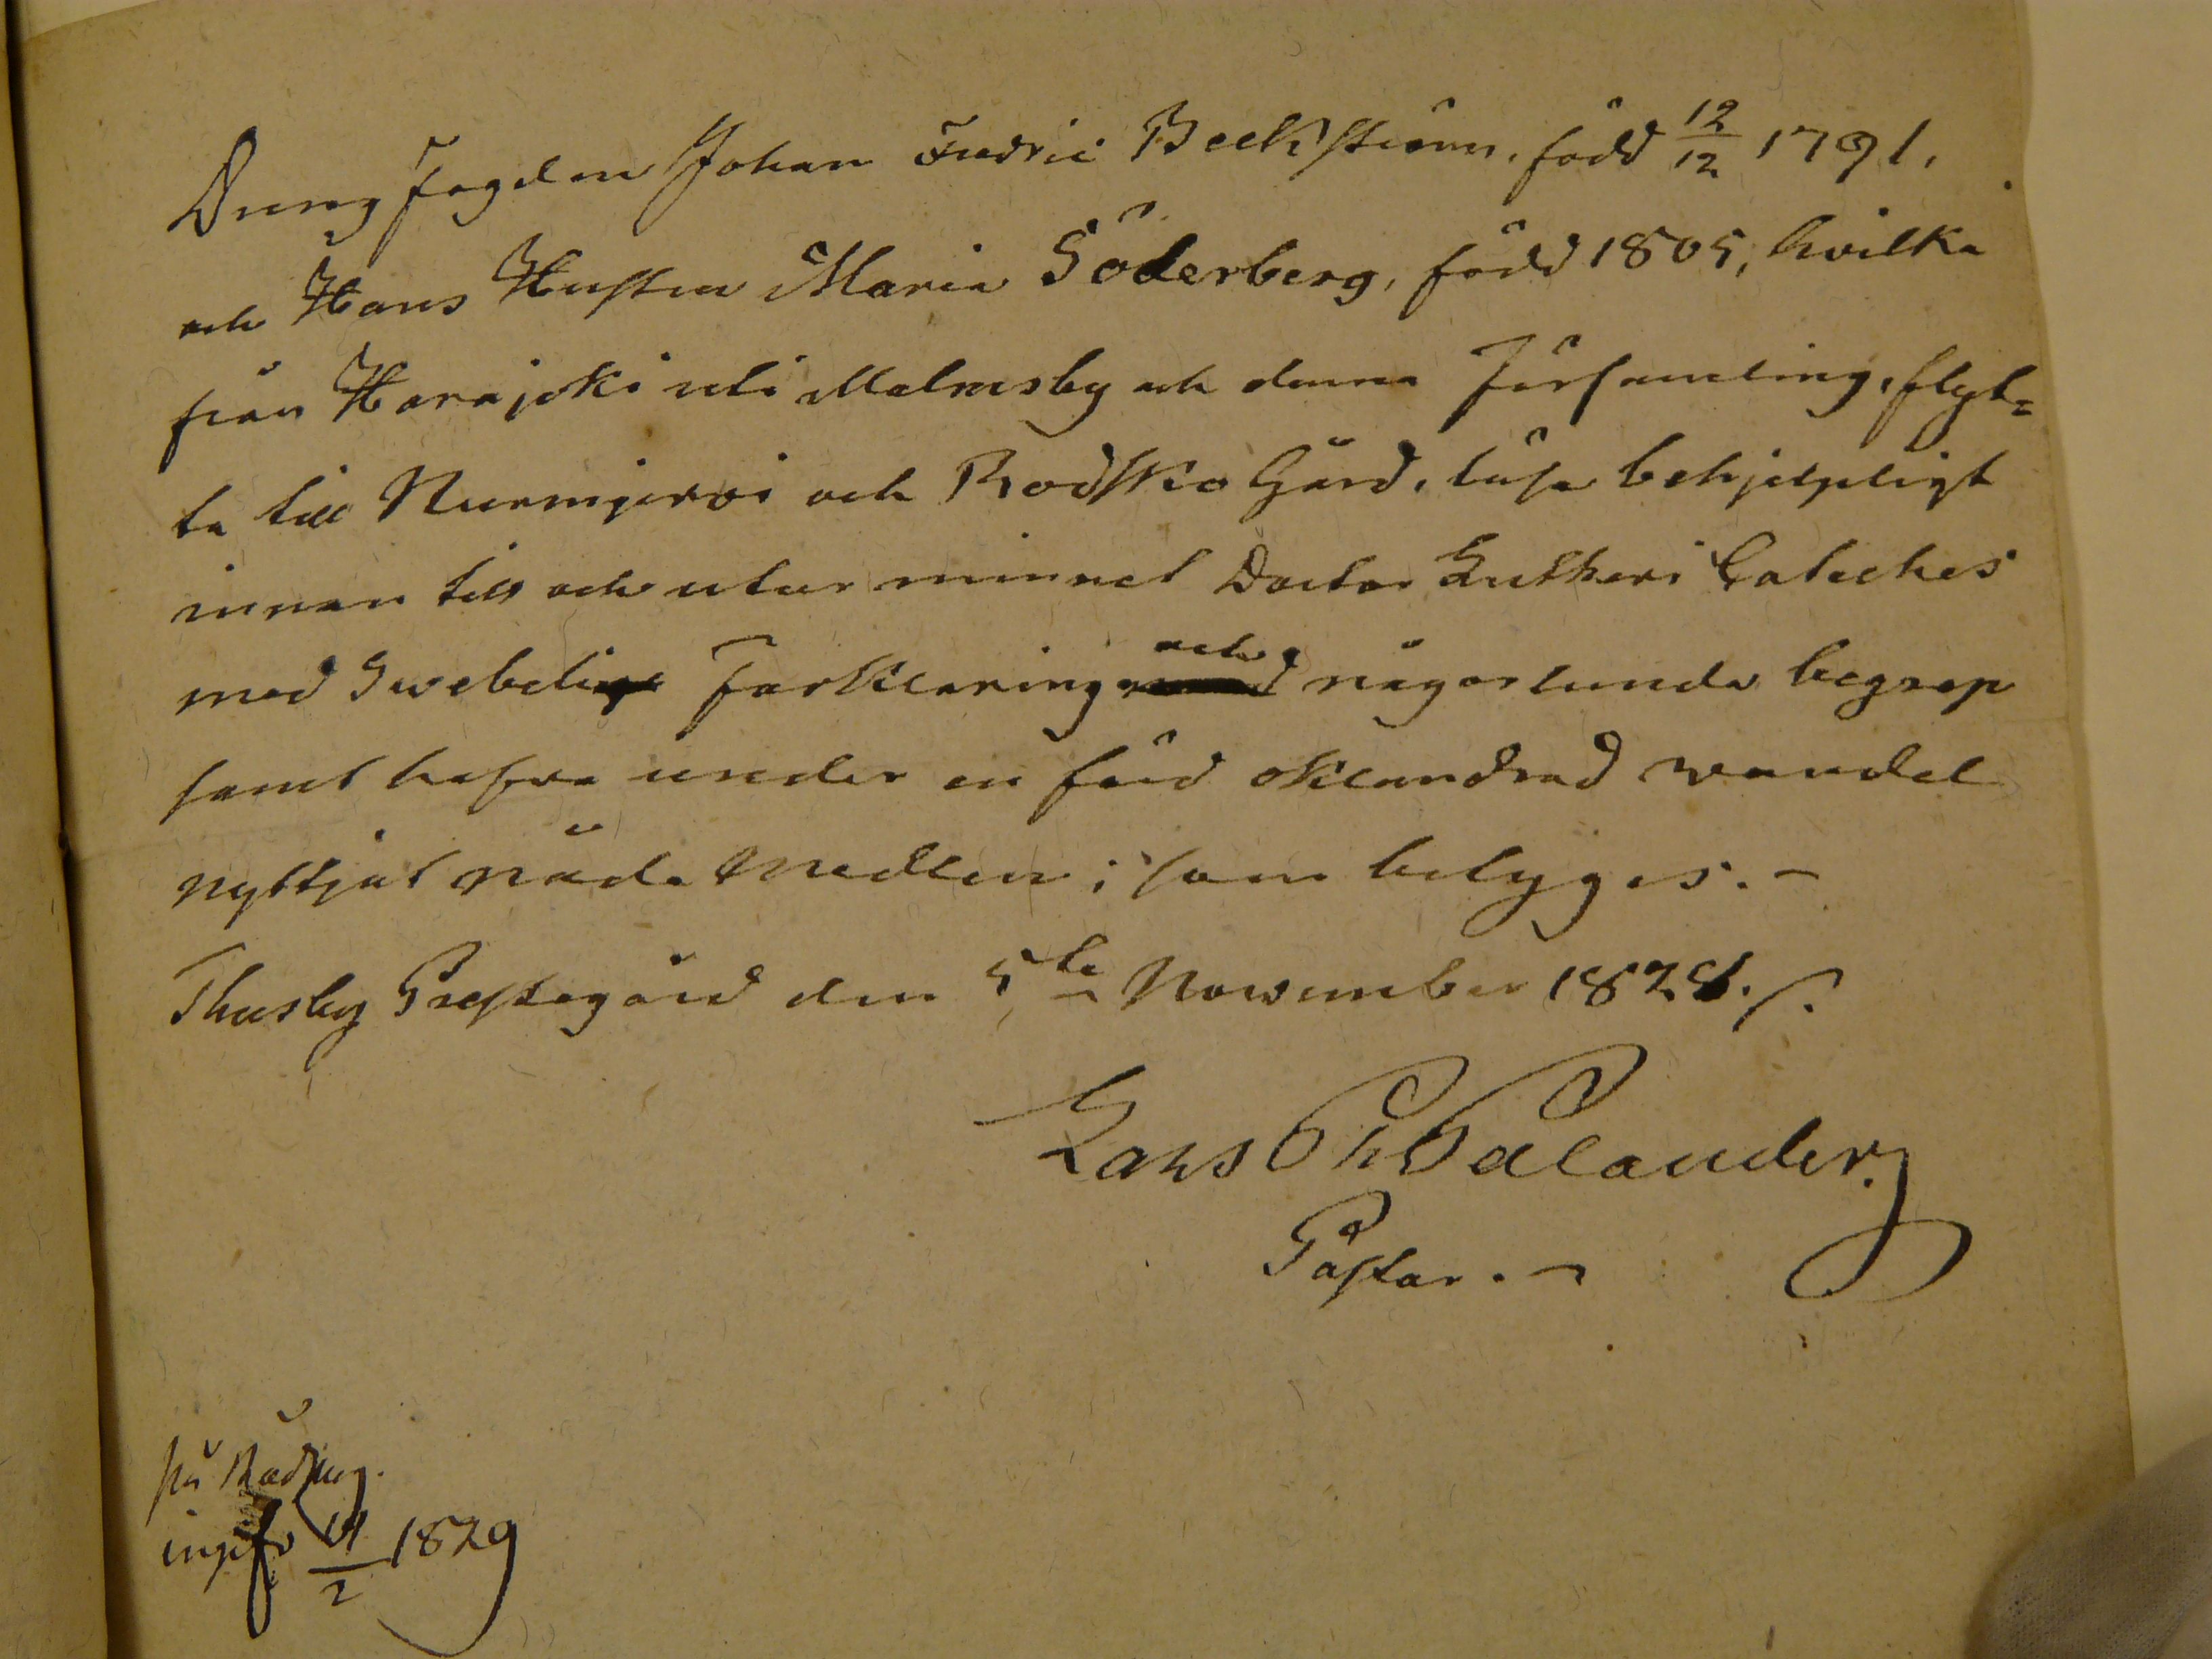 Dreng Fogden Johan Fredric Beckström, född 12/12 1791,
och Hans Hustru Maria Söderberg, född 1805, hvilka
från Harajoki uti Mataresby och denna Församling, flyt=
ta till Nurmijerwi och Rodsko Gård, läsa behjelpligt
innan till och utur minnet Doctor Lutheri Cateches
med Swebelii Förklaring och någorlunda begrep
samt hafwa under en förd oklandrad wandel
nyttjat nåde medlen; som betyges. -
Thusby Prestegård den 5te November 1828. /.
Lars Ph Palander.
Pastor. -
1829